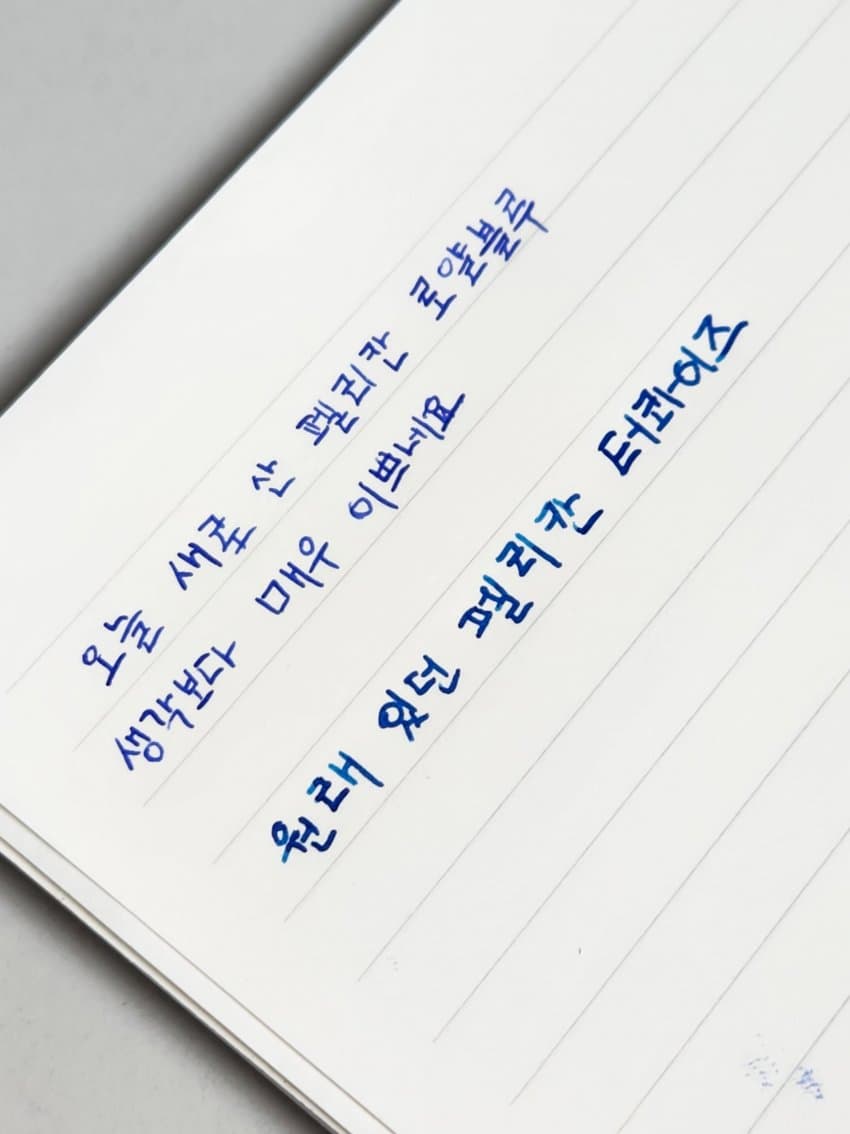 오늘 새로 산 펠리칸 로얄블루
생각보다 매우 이쁘네요
원래 있던 펠리칸 터콰이즈